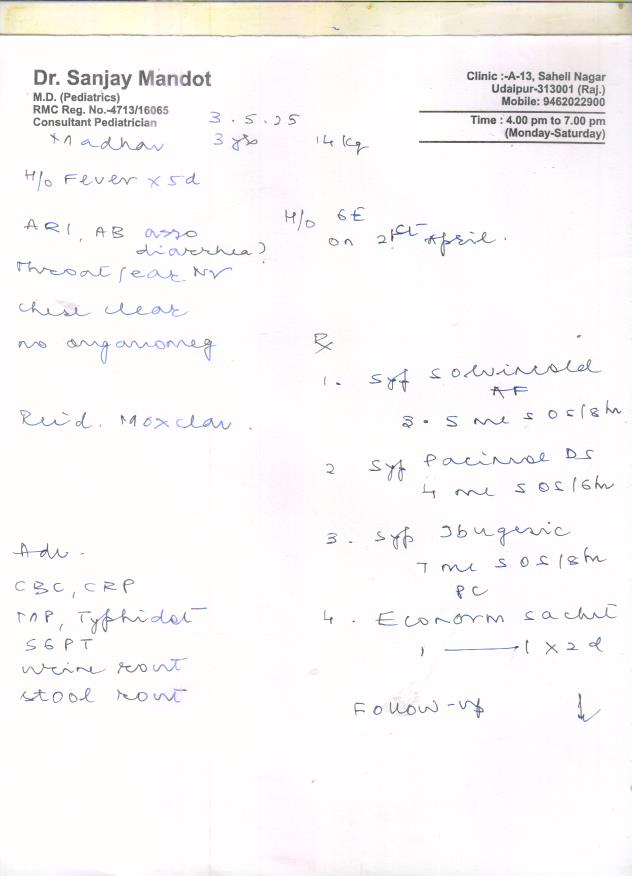 Dr. Sanjay Mandot
M.D. (Pediatrics)
RMC Reg. No.-4713/16065
Consultant Pediatrician
Clinic :-A-13, Saheli Nagar
Udaipur-313001 (Raj.)
Mobile: 9462022900
Time : 4.00 pm to 7.00 pm
(Monday-Saturday)
3.5.25
Madhav 3 yrs 14 kg
H/o Fever x 5d
ARI, AB asso
diarrhea?
H/o GE
on 21st April.
Throat/ear NR
chest clear
no organomeg
Reid. Moxclav.
Adv.
CBC, CRP
MP, Typhidot
SGPT
urine rout
stool rout
Rx
1. Syp Solvincold
AF
3.5 ml SOS/8hr
2 Syp Pacimol DS
4 ml SOS/6hr
3. Syp Ibugesic
7 ml SOS/8hr
PC
4. Econorm sachet
1 — 1 x 2d
Follow-up